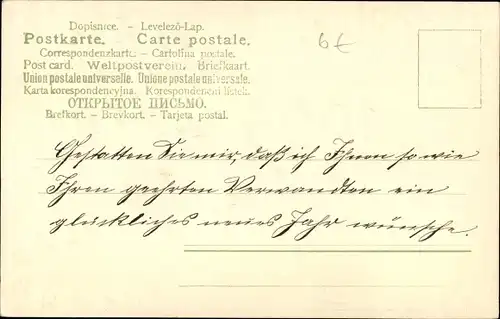 Dopisnice. – Levelező-Lap.
Postkarte. Carte postale.
Correspondenzkarte. – Cartolina postale.
Post card. Weltpostverein. Briefkaart.
Union postale universelle. Unione postale universale.
Karta korespondencyjna. Korespondenčni listek.
ОТКРЫТОЕ ПИСЬМО.
Brefkort. – Brevkort. – Tarjeta postal.
6€
Gestatten Sie mir, daß ich Ihnen so wie
Ihren geehrten Verwandten ein
glückliches neues Jahr wünsche.